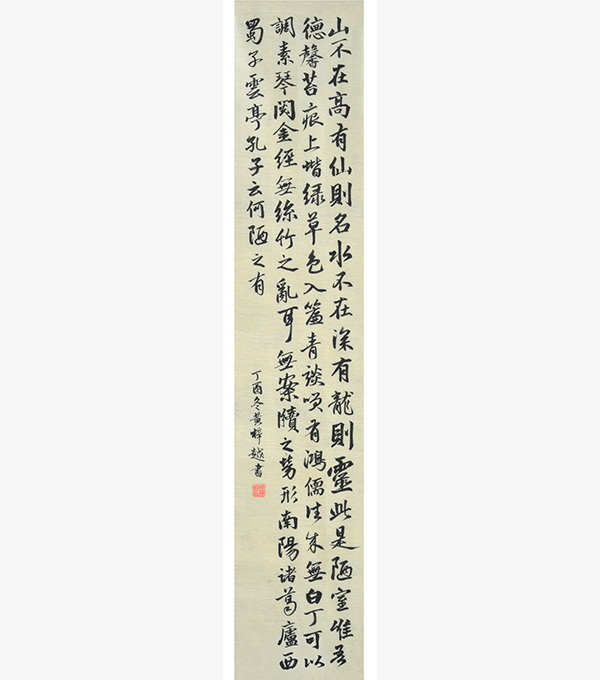 山不在高有仙則名水不在深有龍則靈此是陋室惟吾
德馨苔痕上堦绿草色入簾青談咲有鴻儒往来無白丁可以
調素琴閱金經無絲竹之亂耳無案牘之勞形南陽諸葛廬西
蜀子雲亭孔子云何陋之有
丁酉冬黄越書